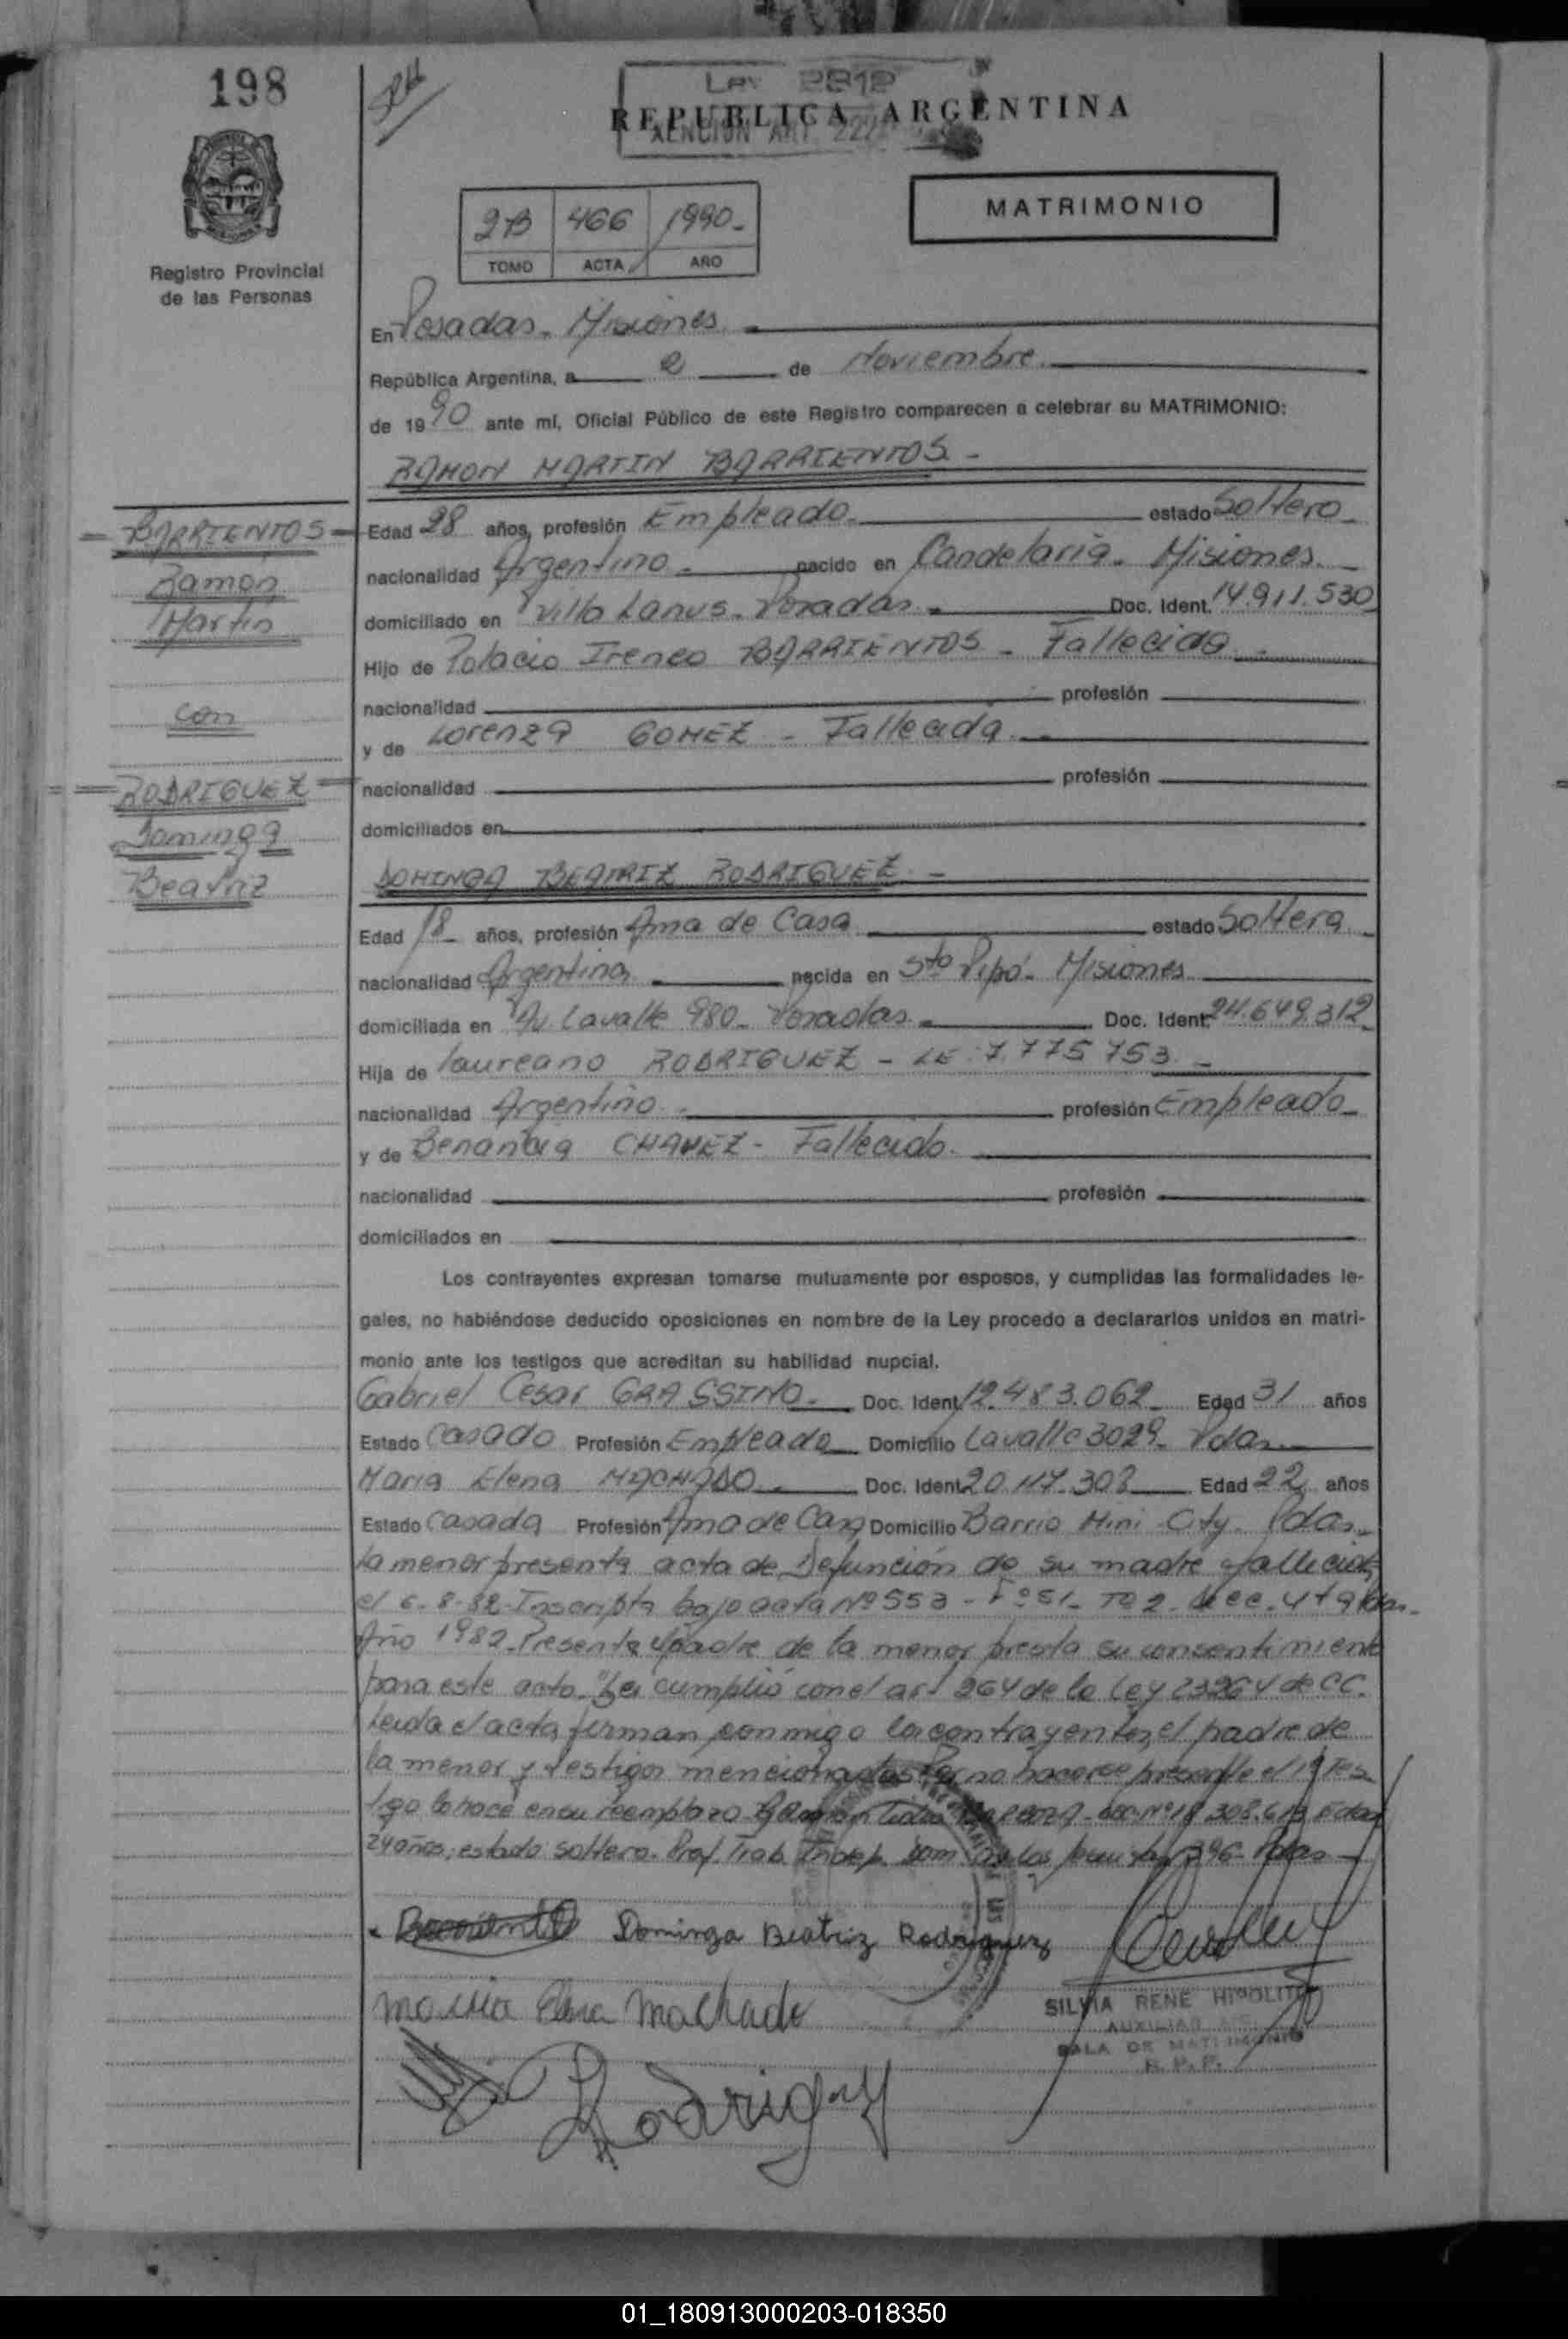 198
Ley 2812
REPUBLICA ARGENTINA
MATRIMONIO
2B 466 1990-
TOMO ACTA AÑO
Registro Provincial
de las Personas
En Posadas - Misiones
República Argentina, a 2 de Noviembre
de 1990 ante mí, Oficial Público de este Registro comparecen a celebrar su MATRIMONIO:
RAMON MARTIN BARRIENTOS -
BARRIENTOS
Ramón
Martin
con
RODRIGUEZ
Dominga
Beatriz
Edad 28 años, profesión Empleado estado Soltero
nacionalidad Argentino nacido en Candelaria - Misiones
domiciliado en Villa Lanus - Posadas Doc. Ident. 14.911.530
Hijo de Polacio Ireneo BARRIENTOS - Fallecido
nacionalidad profesión
y de Lorenza GOMEZ - Fallecida
nacionalidad profesión
domiciliados en
DOMINGA BEATRIZ RODRIGUEZ -
Edad 18 años, profesión Ama de Casa estado Soltera
nacionalidad Argentina nacida en Sto Pipó - Misiones
domiciliada en Av. Lavalle 980 - Posadas Doc. Ident. 24.649.312
Hija de Laureano RODRIGUEZ - LE 7.775 753 -
nacionalidad Argentino profesión Empleado
y de CHAVEZ - Fallecido
nacionalidad profesión
domiciliados en
Los contrayentes expresan tomarse mutuamente por esposos, y cumplidas las formalidades le-
gales, no habiéndose deducido oposiciones en nombre de la Ley procedo a declararlos unidos en matri-
monio ante los testigos que acreditan su habilidad nupcial.
Gabriel Cesar GRASSINO Doc. Ident. 12.483.062 Edad 31 años
Estado Casado Profesión Empleado Domicilio Lavalle 3029 - Pdas
Maria Elena MACHADO Doc. Ident. 20.117.303 Edad 22 años
Estado Casada Profesión Ama de Casa Domicilio Barrio Mini City - Pdas
La menor presenta acta de Defunción de su madre fallecida
el 6-8-82 - Inscripta bajo acta Nº 553 - Fº 51 - Tº 2
Año 1982. Presente el padre de la menor presta su consentimiento
para este acto. Se cumplió con el art 264 de la Ley 23264 de CC.
Leida el acta, firman conmigo los contrayentes, el padre de
la menor y testigos mencionados. Por no hacerse presente el 1º tes
tigo lo hace en su reemplazo Doc. Nº 18.308.613 Edad
24 años, estado soltero. Prof. Trab. Indep. Dom. 396 - Pdas
Barrientos Dominga Beatriz Rodriguez
Maria Elena Machado
SILVIA RENE HIPOLITO
AUXILIAR
SALA DE MATRIMONIO
R. P. P.
Rodriguez
01_180913000203-018350